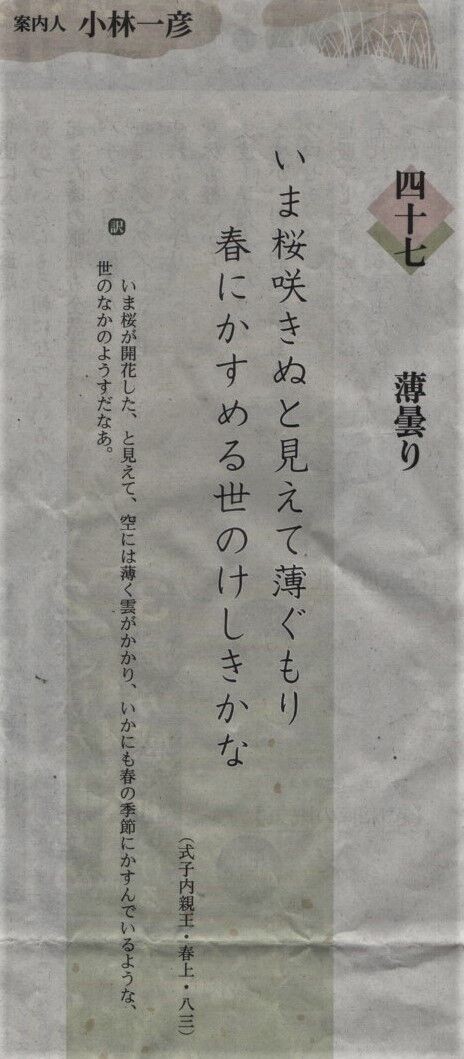 案内人 小林一彦
四十七 薄曇り
いま桜咲きぬと見えて薄ぐもり
春にかすめる世のけしきかな
(式子内親王・春上・八三)
訳
いま桜が開花した、と見えて、空には薄く雲がかかり、いかにも春の季節にかすんでいるような、
世のなかのようすだなあ。